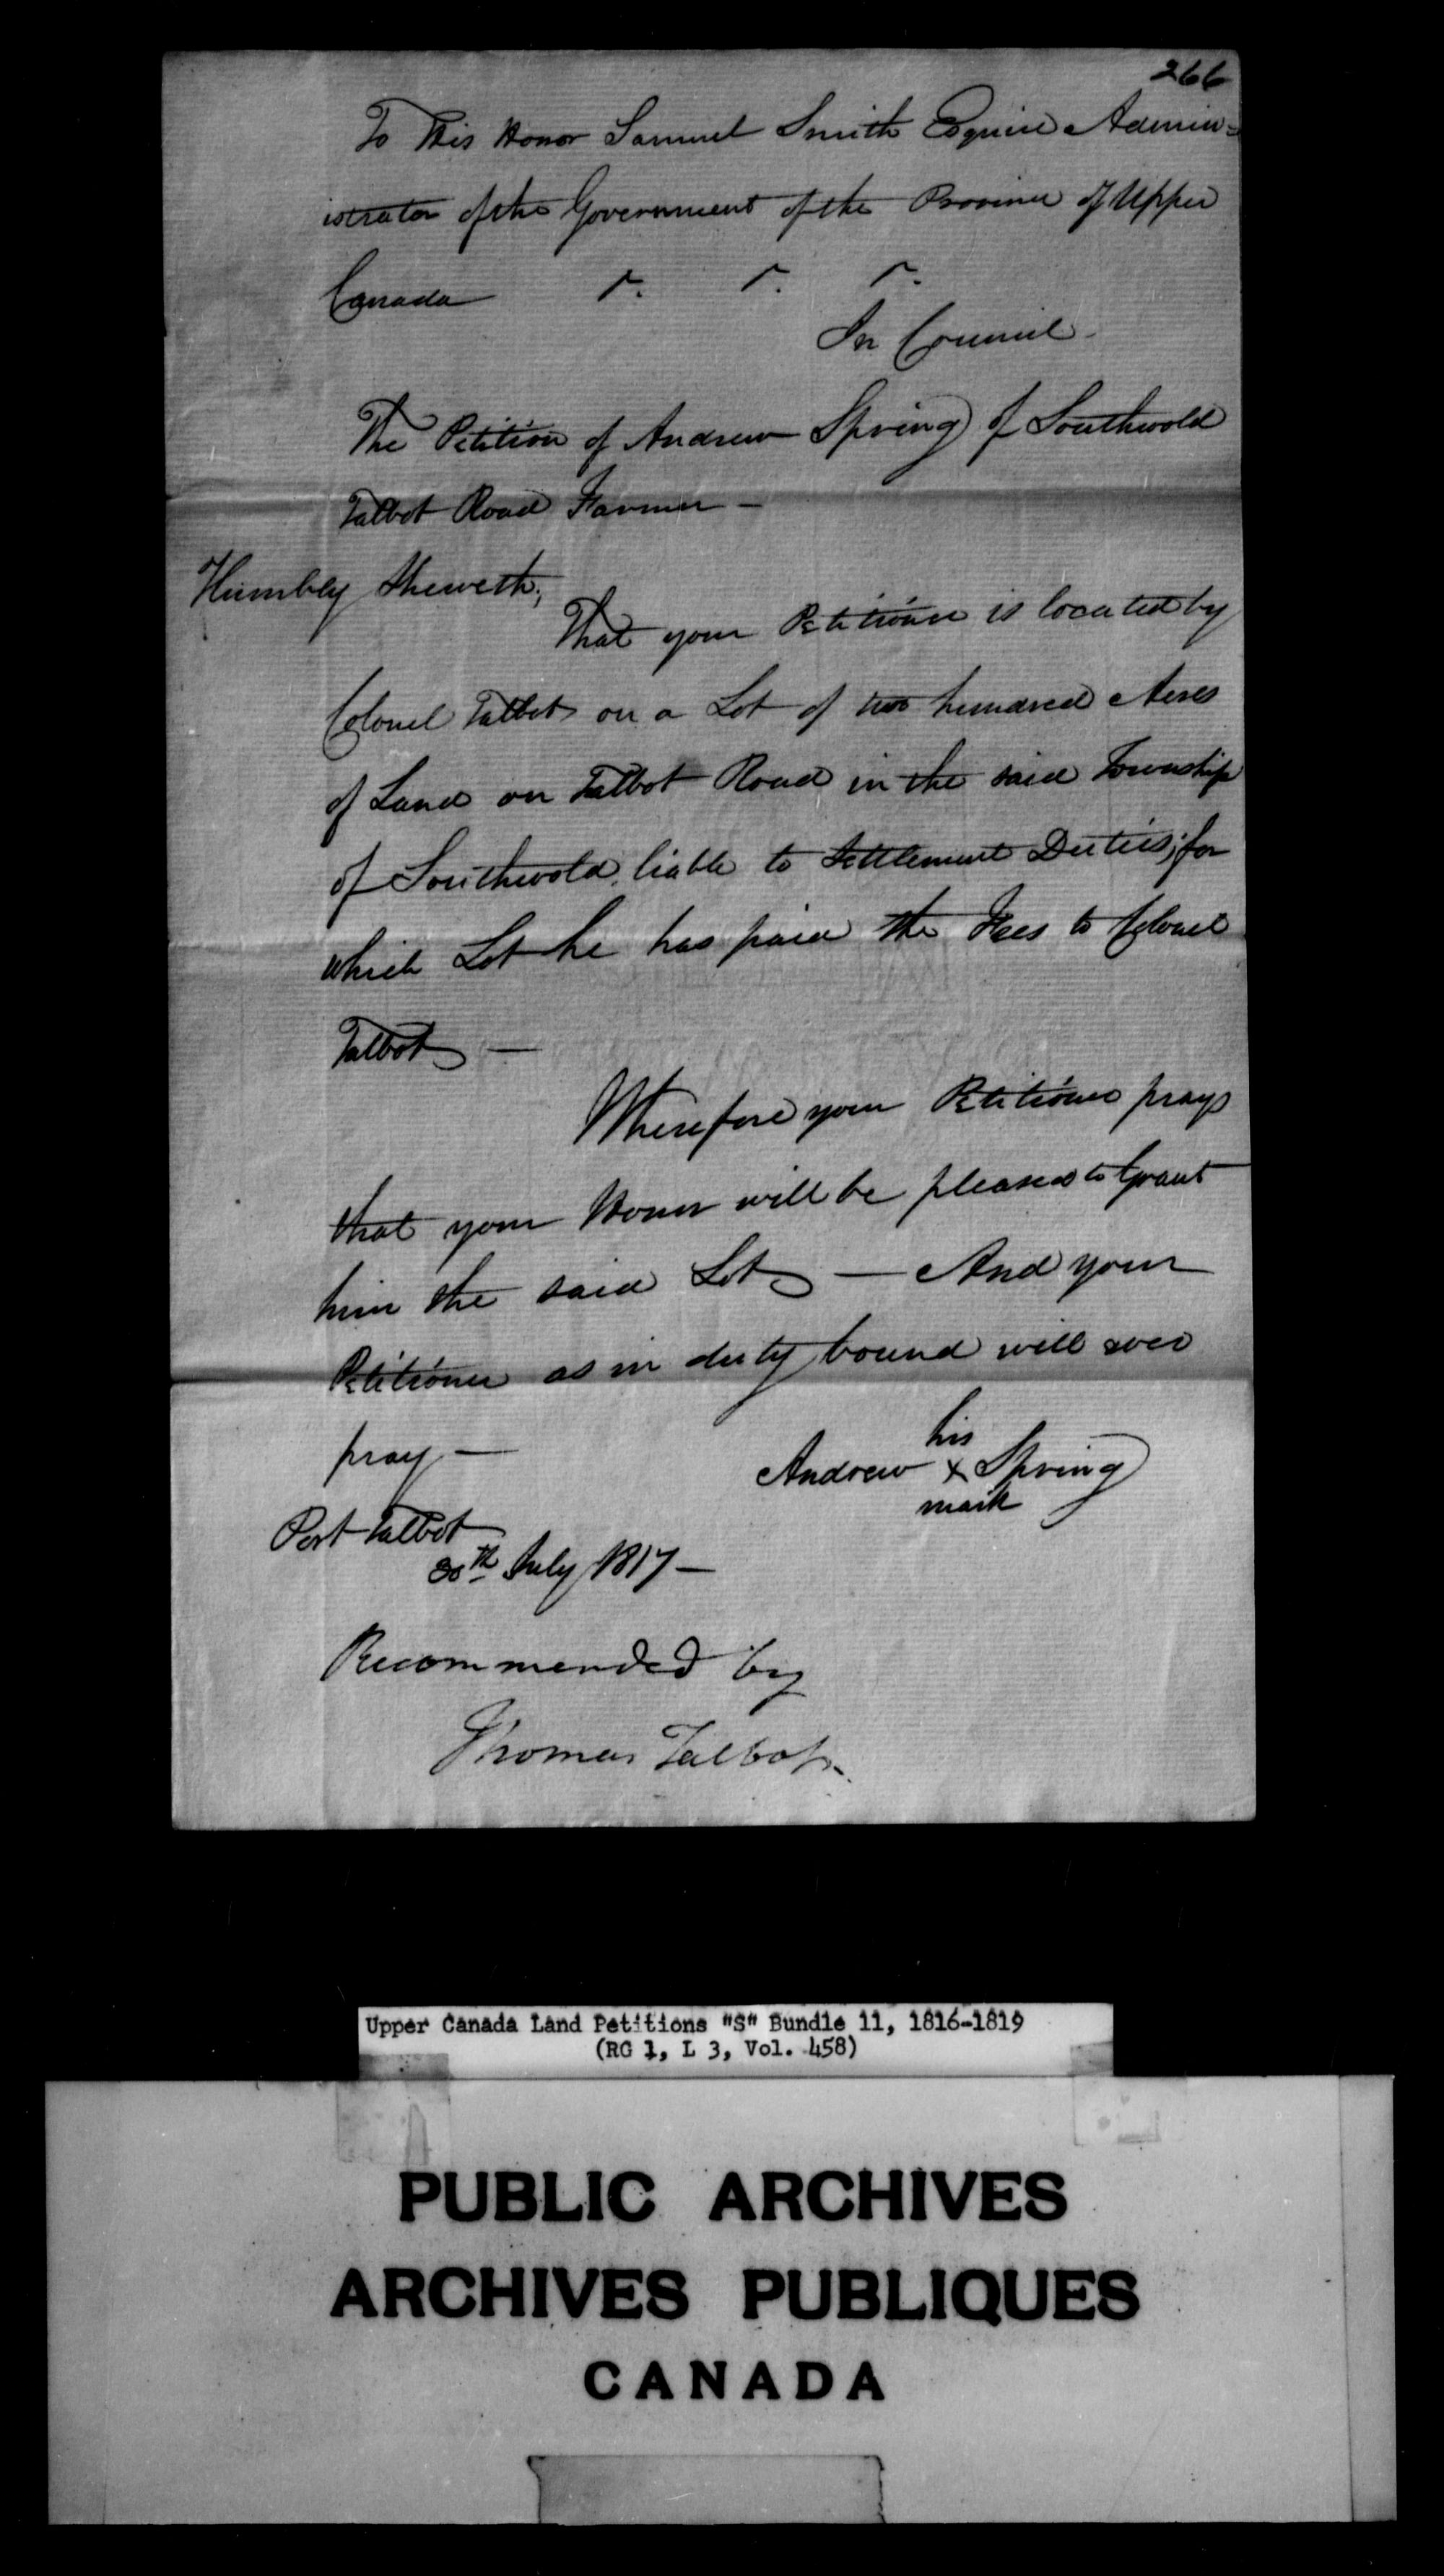 266
To His Honor Samuel Smith Esquire Admin=
istrator of the Government of the Province of Upper
Canada
In Council
The Petition of Andrew Spring of Southwold
Talbot Road Farmer —
Humbly Sheweth;
That your Petitioner is located by
Colonel Talbot on a Lot of two hundred Acres
of Land on Talbot Road in the said Township
of Southwold liable to Settlement Duties; for
which Lot he has paid the Fees to Colonel
Talbot —
Wherefore your Petitioner prays
that your Honor will be pleased to Grant
him the said Lot — And your
Petitioner as in duty bound will ever
pray —
his
Andrew x Spring
mark
Port Talbot
30th July 1817 —
Recommended by
Thomas Talbot
Upper Canada Land Petitions "S" Bundle 11, 1816-1819
(RG 1, L 3, Vol. 458)
PUBLIC ARCHIVES
ARCHIVES PUBLIQUES
CANADA